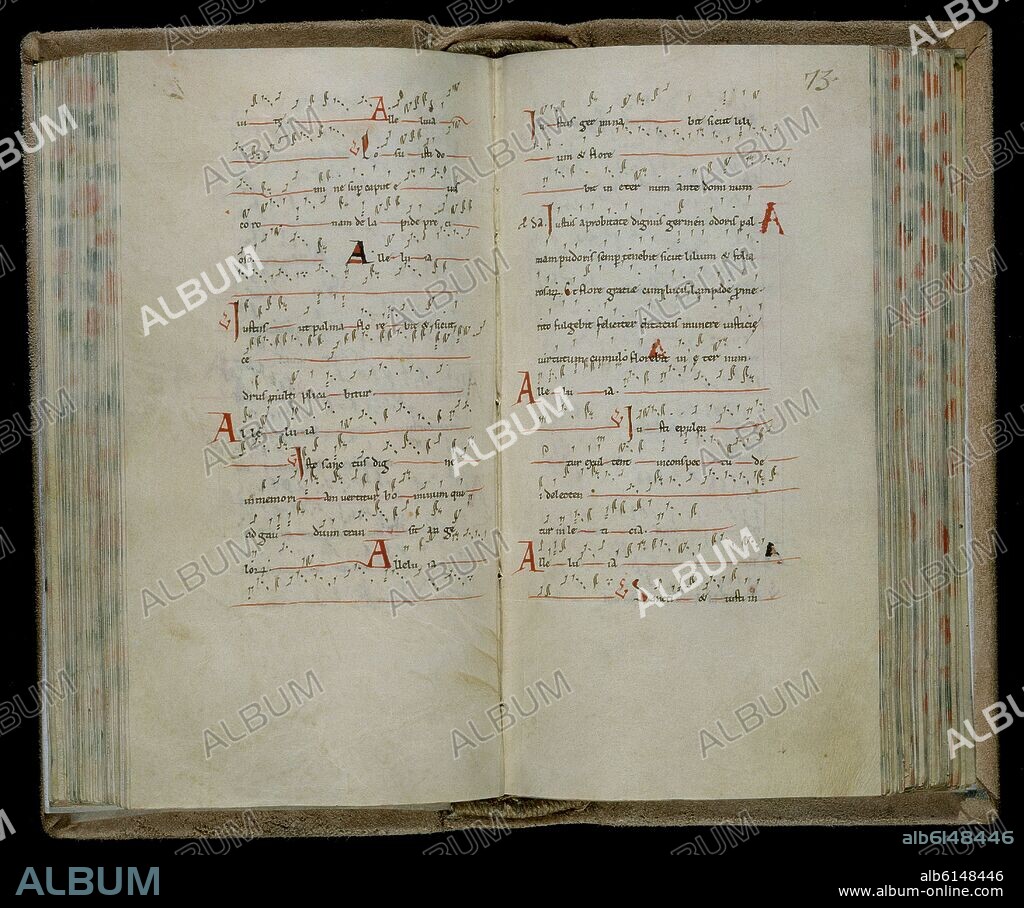 ui Alle luia
Po su isti do
mi ne sup caput e ius
coro nam de la pide pre ci
oso Alle lu ia
Justus ut palma flo re bit & sicut
ce
drus multi plica bitur
Alle lu ia
Iste sanc tus dig ne
in memori am vertitur ho minum qui
ad gau dium tran sit an ge
lorum Allelu ia
73
Justus ger mina bit sicut lili
um & flore
bit in eter num ante dominum
Justus a probitate dignus germen odoris pal
mam pudoris semp tenebit sicut lilium & folia
rosarum Et flore gratie cum lucis lampade pme
rito fulgebit feliciter ditatus munere iusticie
virtutum cumulo florebit in e ter num
Alle lu ia
Ju sti epulen
tur exul tent in conspec tu de
i delecten
tur in le ti cia
Alle lu ia
Sancti & iusti in
ALBUM
alb6148446
ALBUM
alb6148446
www.album-online.com